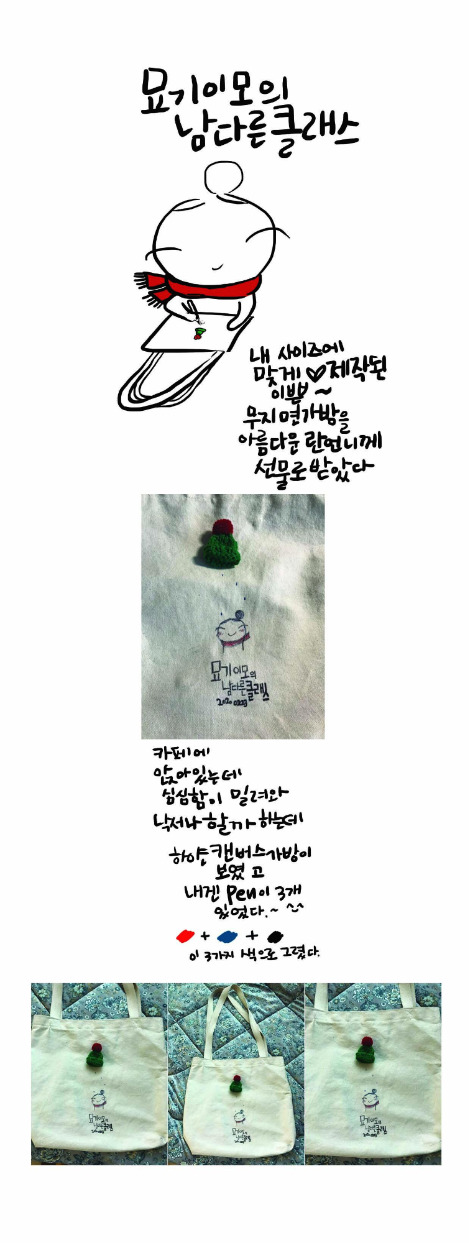 묘기이모의
남다른클래스
내 사이즈에
맞게 ♡제작된
이쁜 ~
무지면가방을
아름다운 란언니께
선물로받았다
묘기이모의
남다른클래스
카페에
앉아있는데
심심함이 밀려와
낙서나 할까 하는데
하얀 캔버스가방이
보였고
내겐 pen이 3개
있었다.~ ^^
+ +
이 3가지 색으로 그렸다.
묘기이모의
남다른클래스
묘기이모의
남다른클래스
묘기이모의
남다른클래스